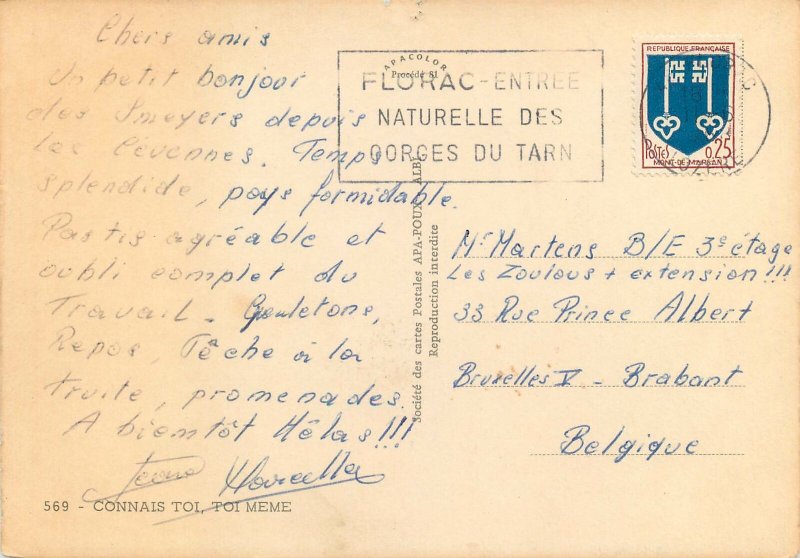 Chers amis
Un petit bonjour
des Smeyers depuis
Les Cevennes. Temps
splendide, pays formidable.
Pastis agréable et
oubli complet du
Travail - Gueuletons,
Repos Pêche à la
truite, promenades.
A bientôt Hélas!!!
Marcella
569 - CONNAIS TOI, TOI MEME
APACOLOR
Procédé 81
FLORAC-ENTREE
NATURELLE DES
GORGES DU TARN
Société des cartes Postales APA-POUX - ALBI
Reproduction interdite
REPUBLIQUE FRANÇAISE
POSTES 0,25
MONT-DE-MARSAN
LOZERE
Mr Martens B/E 3e étage
Les Zoulous + extension!!!
33 Rue Prince Albert
Bruxelles V - Brabant
Belgique